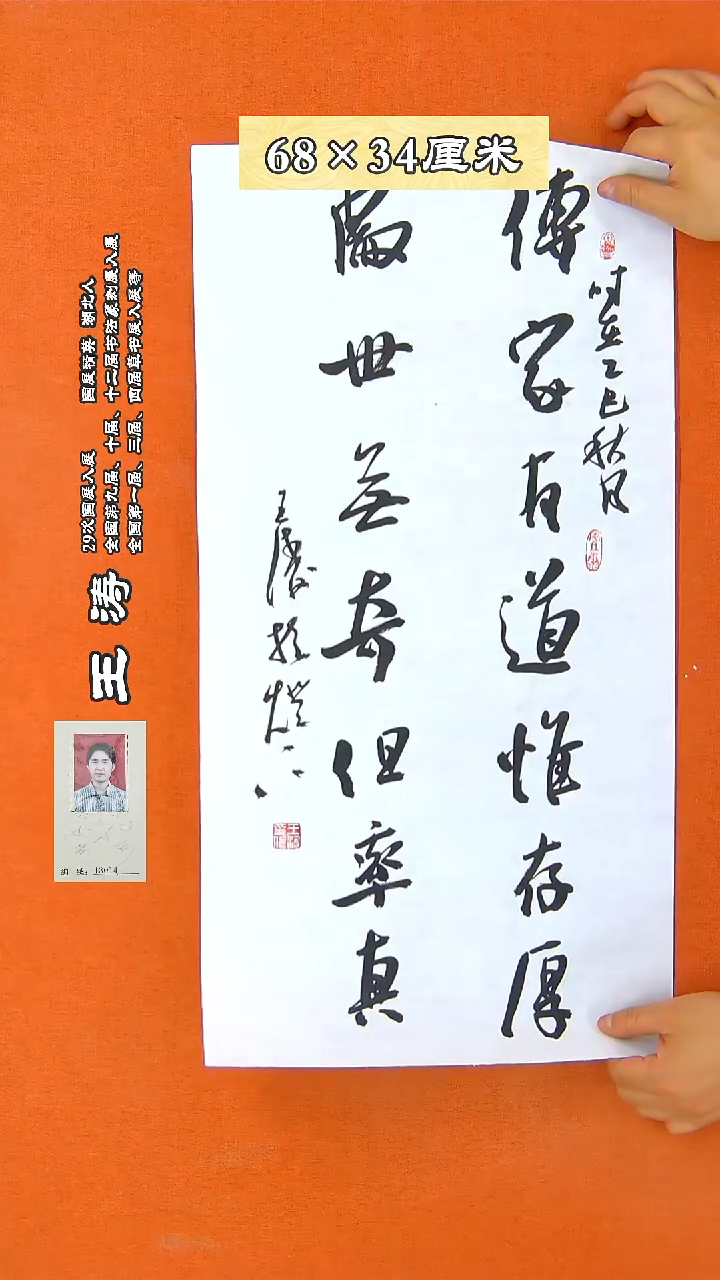 68×34厘米
傳家有道惟存厚
處世無奇但率真
时在乙巳秋月
王濤於燈下
王涛
29次国展入展 国展精英 湖北人
全国第九届、十届、十二届书法篆刻展入展
全国第一届、三届、四届草书展入展等